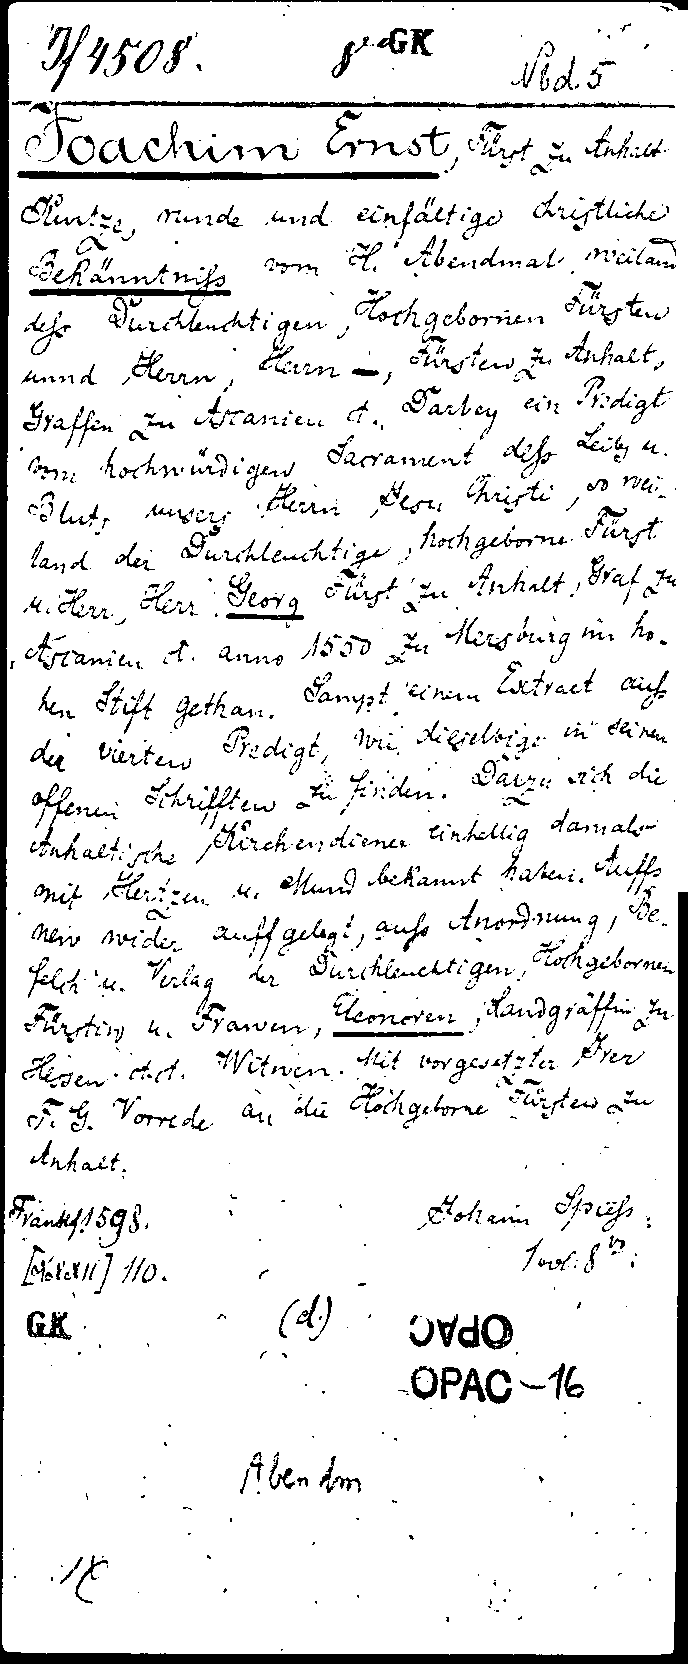 4508.
GK
Nbd. 5
Joachim Ernst, Fürst zu Anhalt
Kurtze, runde und einfältige christliche
Bekänntniss vom H. Abendmal weiland
dess Durchleuchtigen, Hochgebornen Fürsten
unnd Herrn, Herrn —, Fürsten zu Anhalt,
Graffen zu Ascanien ct. Darbey ein Predigt
vom hochwürdigen Sacrament dess Leibs u.
Bluts unsers Herrn Jesu Christi, so wei-
land der Durchleuchtige, hochgeborne Fürst
u. Herr, Herr Georg Fürst zu Anhalt, Graf zu
Ascanien ct. anno 1550 zu Mersburg im ho-
hen Stift gethan. Sampt einem Extract auss
der vierten Predigt, wie dieselbige in seinen
offenen Schrifften zu finden. Darzu sich die
Anhaltische Kirchendiener einhellig damals
mit Hertzen u. Mund bekannt haben. Auffs
new wider auffgelegt, auss Anordnung, Be-
felch u. Verlag der Durchleuchtigen, Hochgebornen
Fürstin u. Frawen, Eleonoren, Landgräffin zu
Hessen ct.ct. Witwen. Mit vorgesetzter Irer
F. G. Vorrede an die Hochgeborne Fürsten zu
Anhalt.
Frankf. 1598. Johann Spiess.
110. 1 vol. 8vo.
GK (d.) OPAC
OPAC -16
Abendm